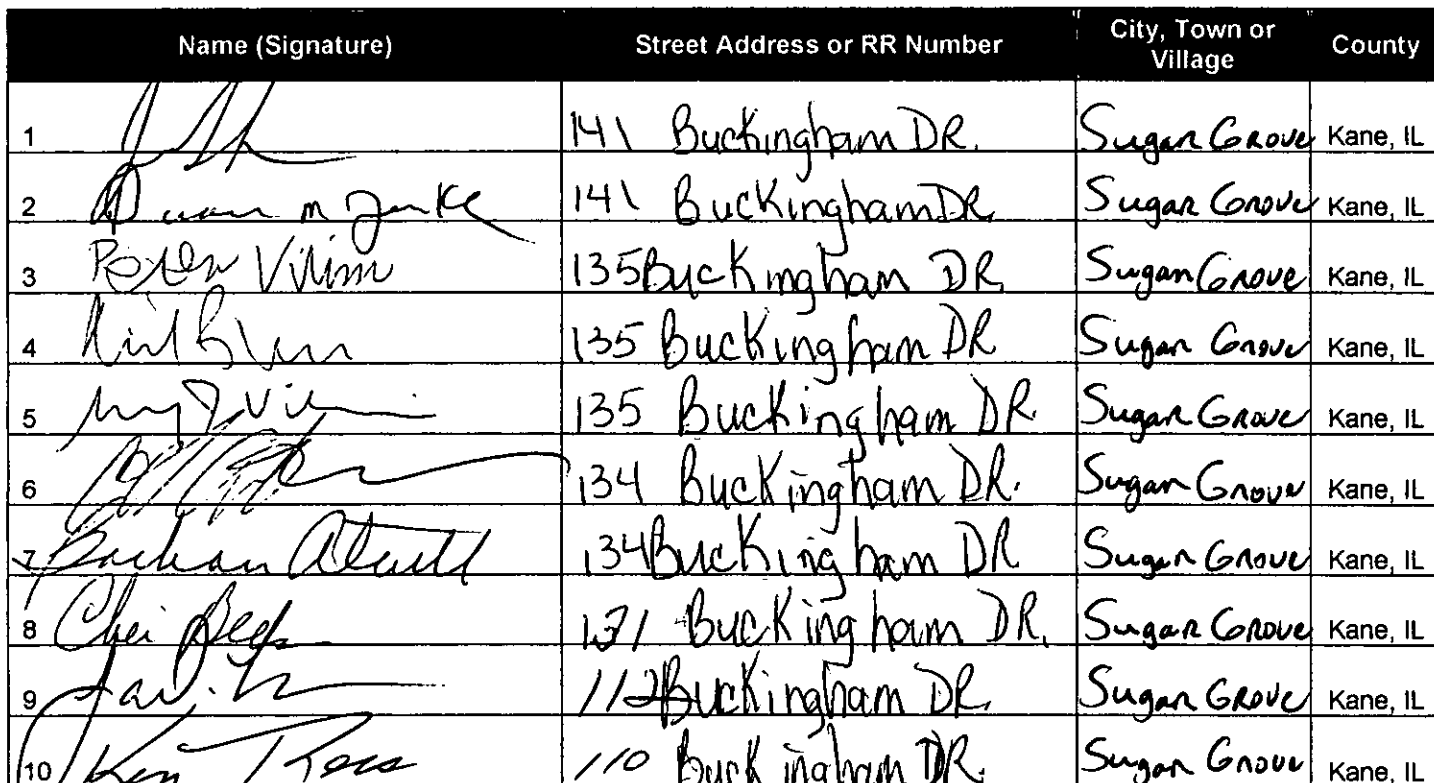 Name (Signature) Street Address or RR Number City, Town or Village County
1 141 Buckingham DR. Sugar Grove Kane, IL
2 m 141 Buckingham DR. Sugar Grove Kane, IL
3 Vilim 135 Buckingham DR Sugar Grove Kane, IL
4 135 Buckingham DR Sugar Grove Kane, IL
5 135 Buckingham DR. Sugar Grove Kane, IL
6 134 Buckingham DR. Sugar Grove Kane, IL
7 134 Buckingham DR Sugar Grove Kane, IL
8 131 Buckingham DR. Sugar Grove Kane, IL
9 112 Buckingham DR. Sugar Grove Kane, IL
10 Ken 110 Buckingham DR. Sugar Grove Kane, IL